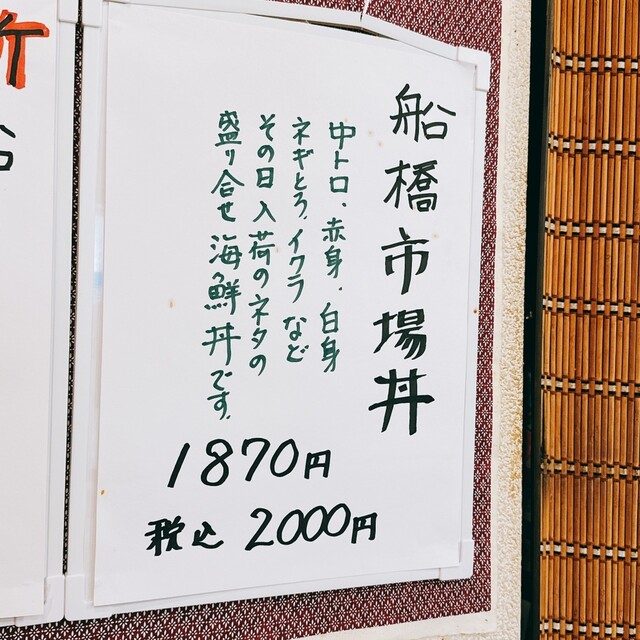 船橋市場丼
中トロ、赤身、白身
ネギとろ、イクラなど
その日入荷のネタの
盛り合せ海鮮丼です。
1870円
税込2000円